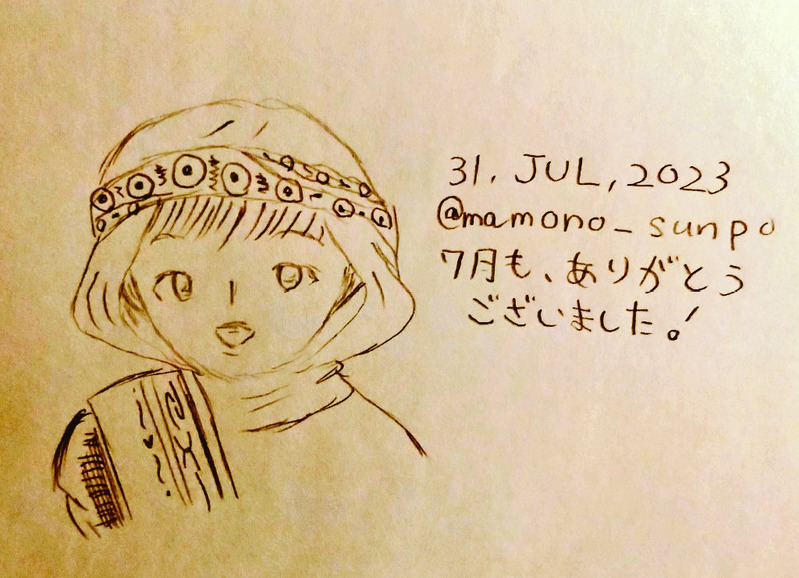 31. JUL, 2023
@mamono_sunpo
7月も、ありがとう
ございました!